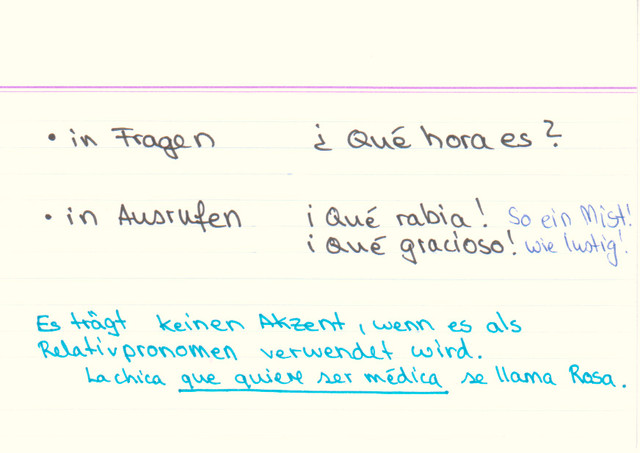 • in Fragen ¿Qué hora es?
• in Ausrufen ¡Qué rabia! So ein Mist!
¡Qué gracioso! wie lustig!
Es trägt keinen Akzent, wenn es als
Relativpronomen verwendet wird.
La chica que quiere ser médica se llama Rosa.